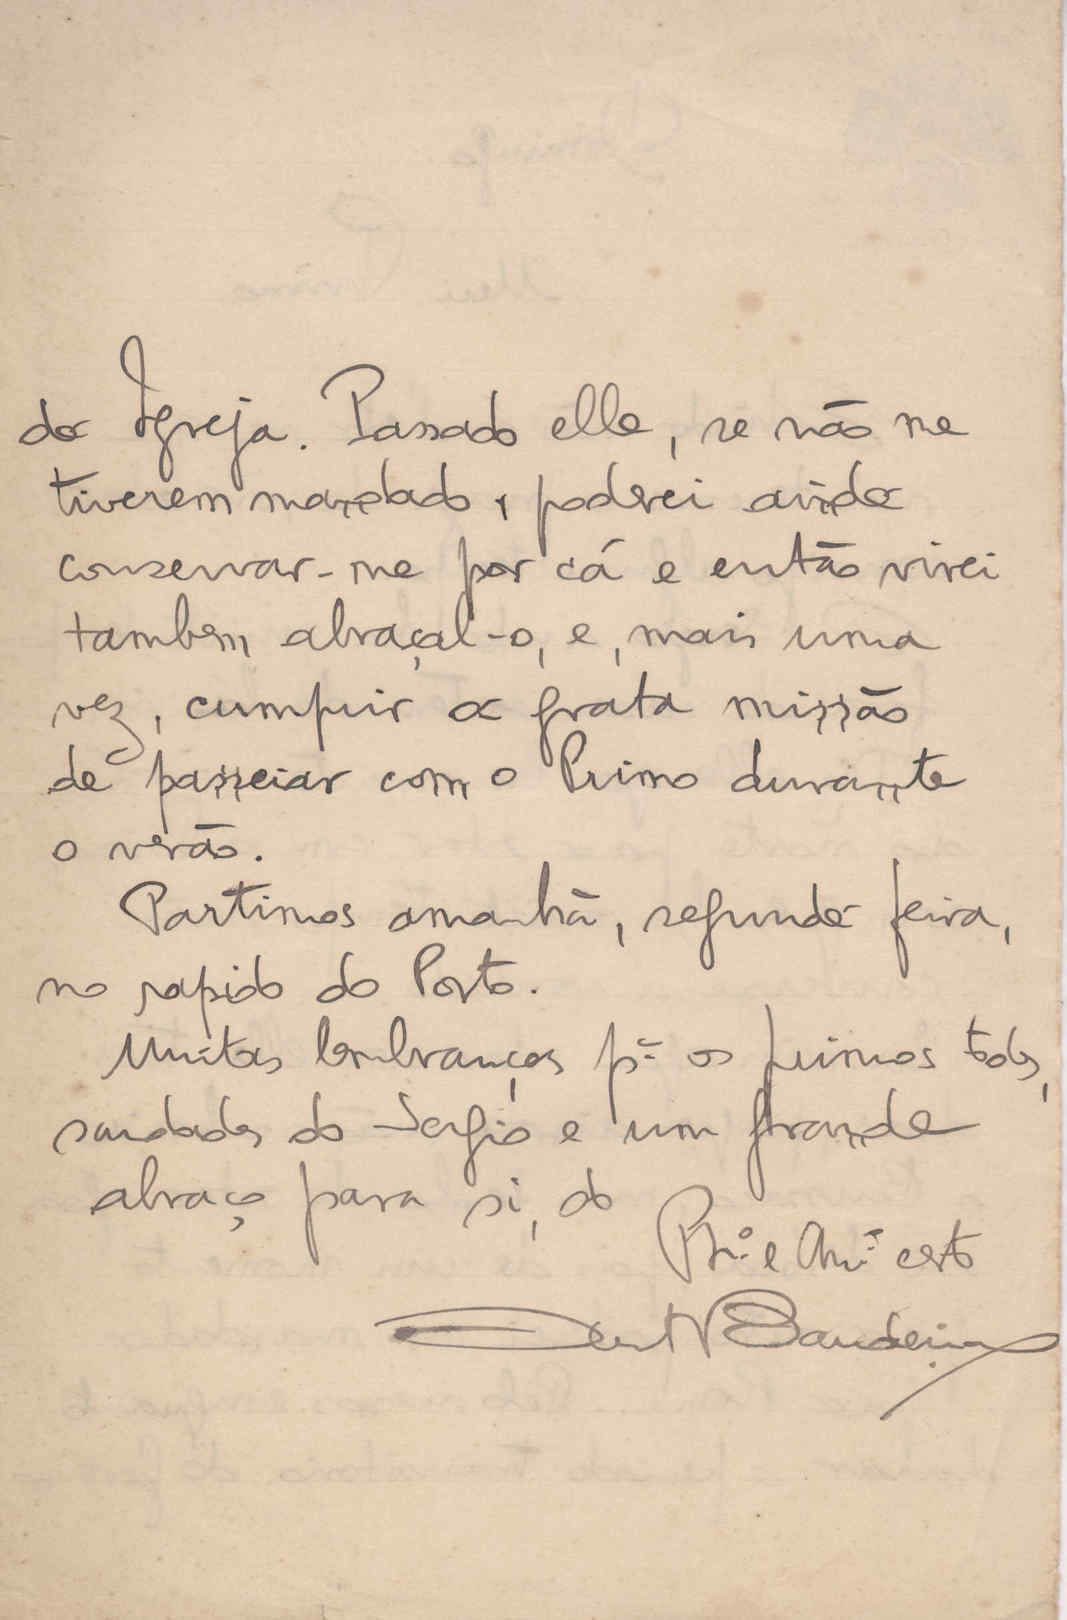 da Igreja. Passado elle, se não me
tiverem mandado, poderei ainda
conservar-me por cá e então virei
tambem abraçal-o, e, mais uma
vez, cumprir a grata missão
de passeiar com o Primo durante
o verão.
Partimos amanhã, segunda feira,
no rapido do Porto.
Muitas lembranças pª os primos todos,
saudades do Sergio e um grande
abraço para si, do
Prº. e Amº. certo
Bandeira